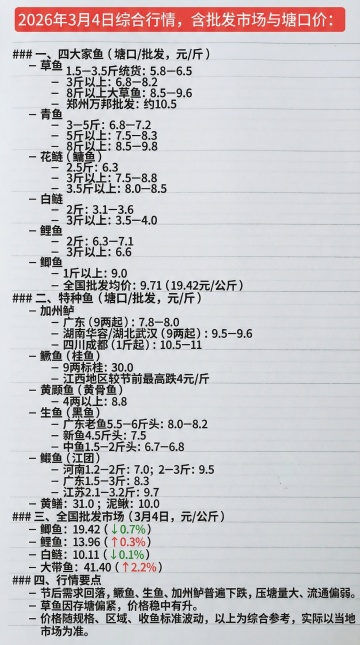 2026年3月4日综合行情，含批发市场与塘口价：
### 一、四大家鱼（塘口/批发，元/斤）
– 草鱼
– 1.5–3.5斤统货：5.8–6.5
– 3斤以上：6.8–8.2
– 8斤以上大草鱼：8.5–9.6
– 郑州万邦批发：约10.5
– 青鱼
– 3–5斤：6.8–7.2
– 5斤以上：7.5–8.3
– 8斤以上：8.5–9.8
– 花鲢（鳙鱼）
– 2.5斤：6.3
– 3斤以上：7.5–8.8
– 3.5斤以上：8.0–8.5
– 白鲢
– 2斤：3.1–3.6
– 3斤以上：3.5–4.0
– 鲤鱼
– 2斤：6.3–7.1
– 3斤以上：6.6
– 鲫鱼
– 1斤以上：9.0
– 全国批发均价：9.71（19.42元/公斤）
### 二、特种鱼（塘口/批发，元/斤）
– 加州鲈
– 广东（9两起）：7.8–8.0
– 湖南华容/湖北武汉（9两起）：9.5–9.6
– 四川成都（1斤起）：10.5–11
– 鳜鱼（桂鱼）
– 9两标桂：30.0
– 江西地区较节前最高跌4元/斤
– 黄颡鱼（黄骨鱼）
– 4两以上：8.8
– 生鱼（黑鱼）
– 广东老鱼5.5–6斤头：8.0–8.2
– 新鱼4.5斤头：7.5
– 中鱼1.5–2斤头：6.7–6.8
– 鮰鱼（江团）
– 河南1.2–2斤：7.0；2–3斤：9.5
– 广东1.5–3斤：8.3
– 江苏2.1–3.2斤：9.7
– 黄鳝：31.0；泥鳅：10.0
### 三、全国批发市场（3月4日，元/公斤）
– 鲫鱼：19.42（↓0.7%）
– 鲤鱼：13.96（↑0.3%）
– 白鲢：10.11（↓0.1%）
– 大带鱼：41.40（↑2.2%）
### 四、行情要点
– 节后需求回落，鳜鱼、生鱼、加州鲈普遍下跌，压塘量大、流通偏弱。
– 草鱼因存塘偏紧，价格稳中有升。
– 价格随规格、区域、收鱼标准波动，以上为综合参考，实际以当地
市场为准。